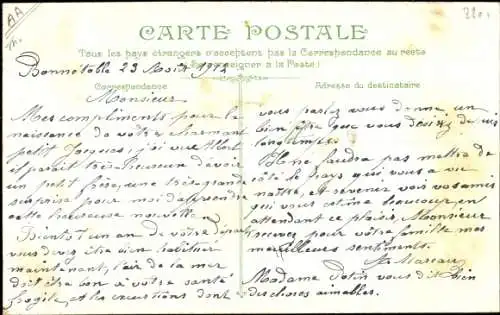 AA
CARTE POSTALE
Tous les pays étrangers n'acceptent pas la Correspondance au recto
(Se renseigner à la Poste)
Correspondance
Adresse du destinataire
Bonnétable 23 Août
Monsieur
Mes compliments pour la
naissance de votre charmant
petit Jacques, j'ai vu Albert
il parait très heureux d'avoir
un petit frère, une très grande
surprise pour moi d'apprendre
cette heureuse nouvelle.
Bientôt un an de votre départ
vous devez être bien habitué
maintenant, l'air de la mer
doit être bon à votre santé
fragile, et les excursions dont
vous parlez vous donne un
bien être que vous désirez depuis
longtemps.
Il ne faudra pas mettre de
côté le pays qui vous a vu
naître, et revenez voir vos amis
qui vous estime beaucoup, en
attendant ce plaisir, Monsieur
recevez pour votre famille mes
meilleurs sentiments.
Marcau
Madame Potin vous dit bien
des choses aimables.